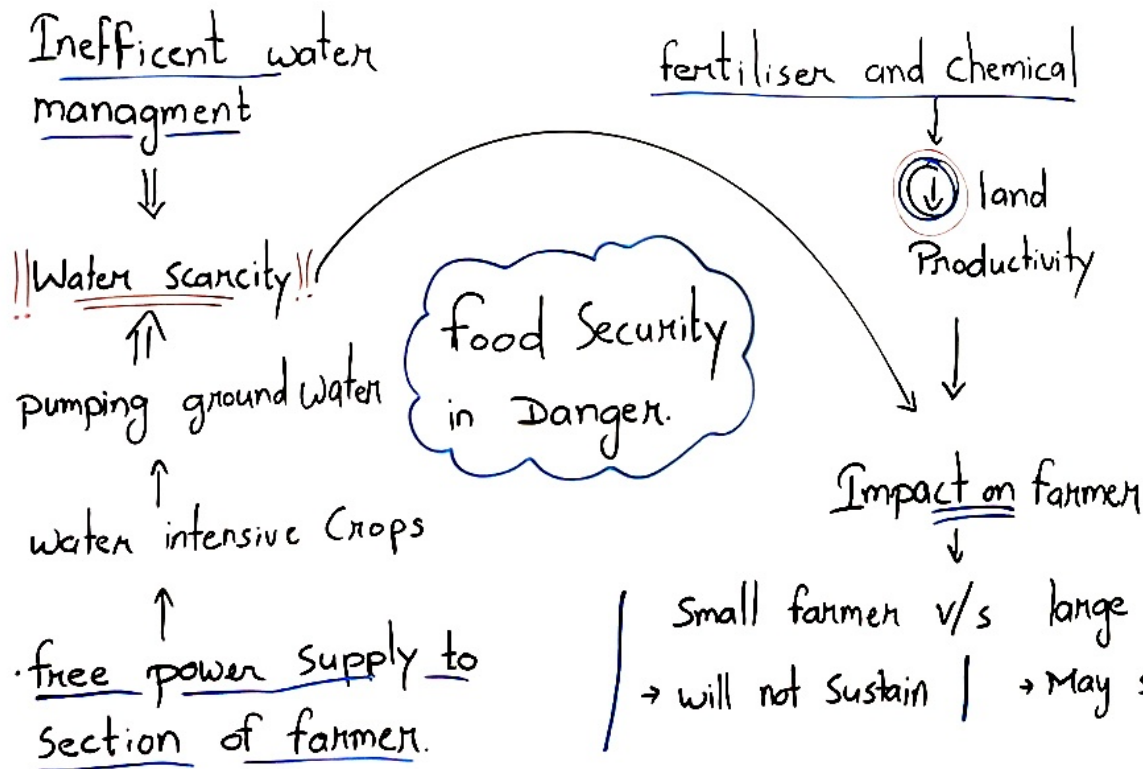 Inefficent water
managment
Water scarcity
pumping ground water
water intensive Crops
.free power supply to
section of farmer.
food Security
in Danger.
fertiliser and chemical
↓ land
Productivity
Impact on farmer
Small farmer v/s large
→ will not sustain | → May